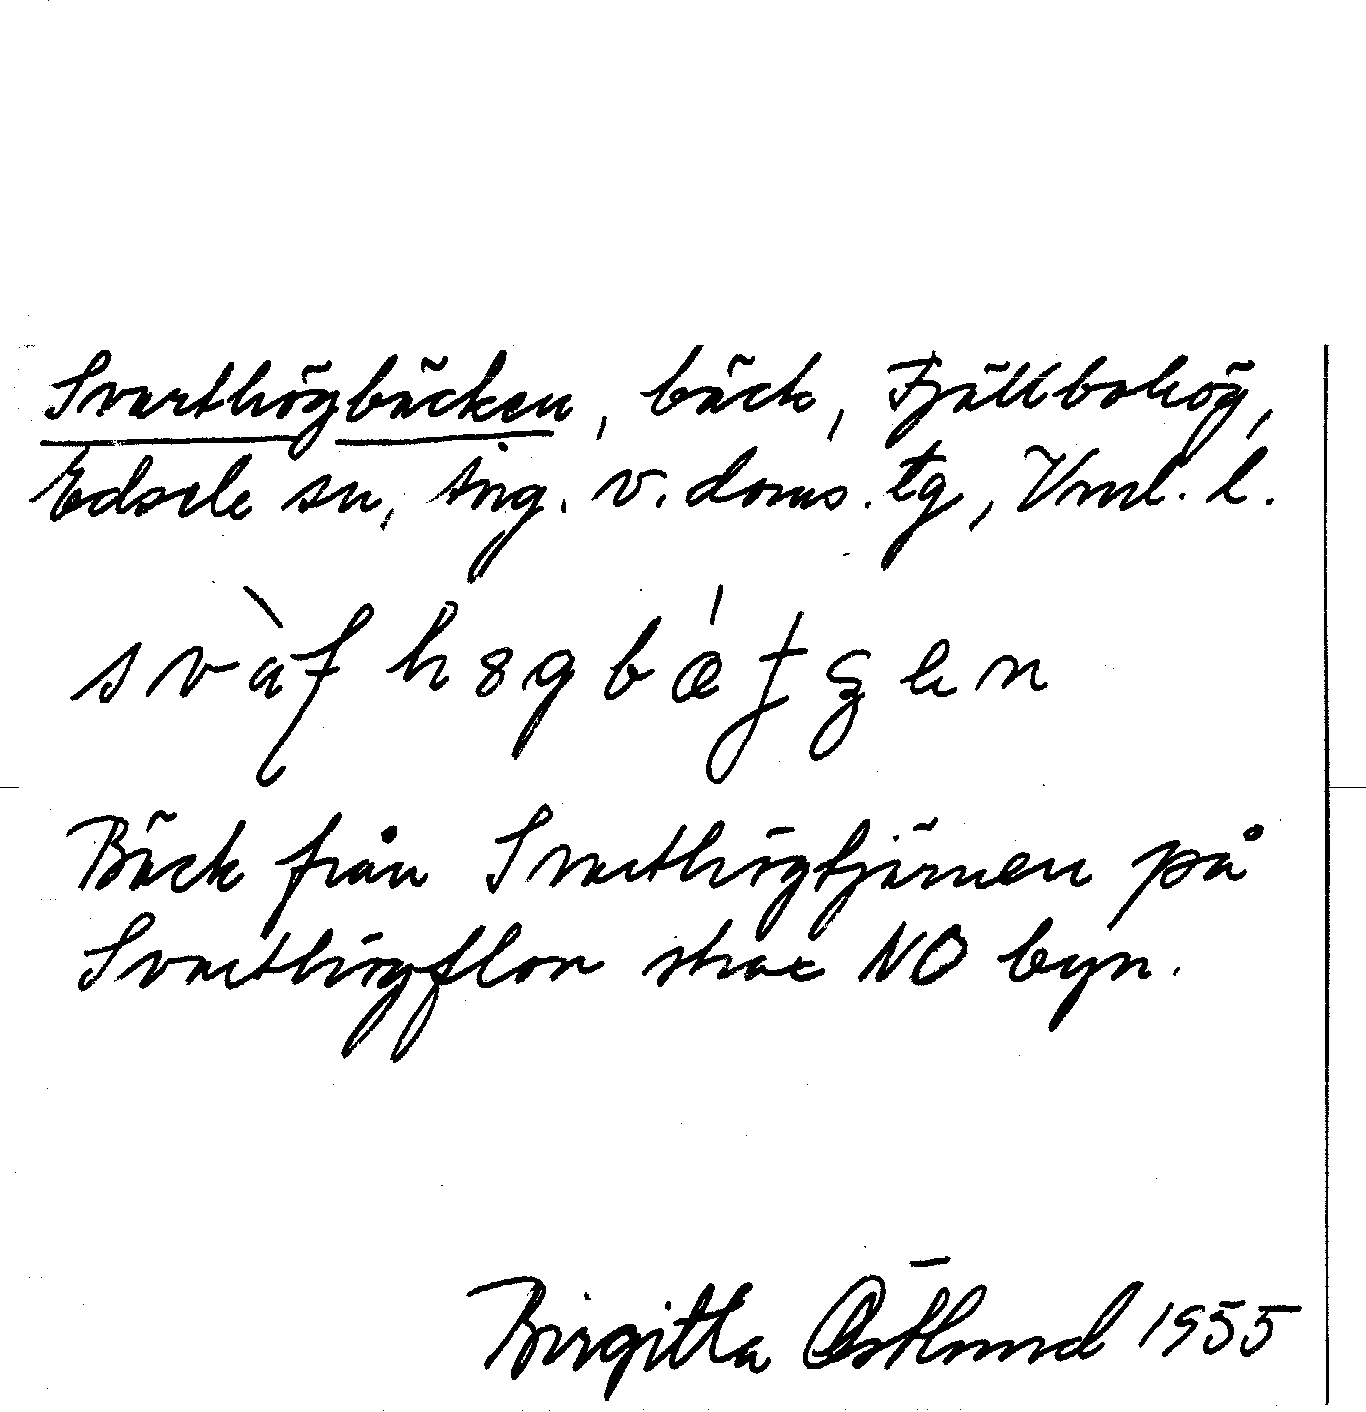 Svarthögbäcken, bäck, Fjällbohög,
Edsele sn, Ång. v. doms. tg, Vml. l.
Bäck från Svarthögtjärnen på
Svarthögflon strax NO byn.
Birgitta Östlund 1955